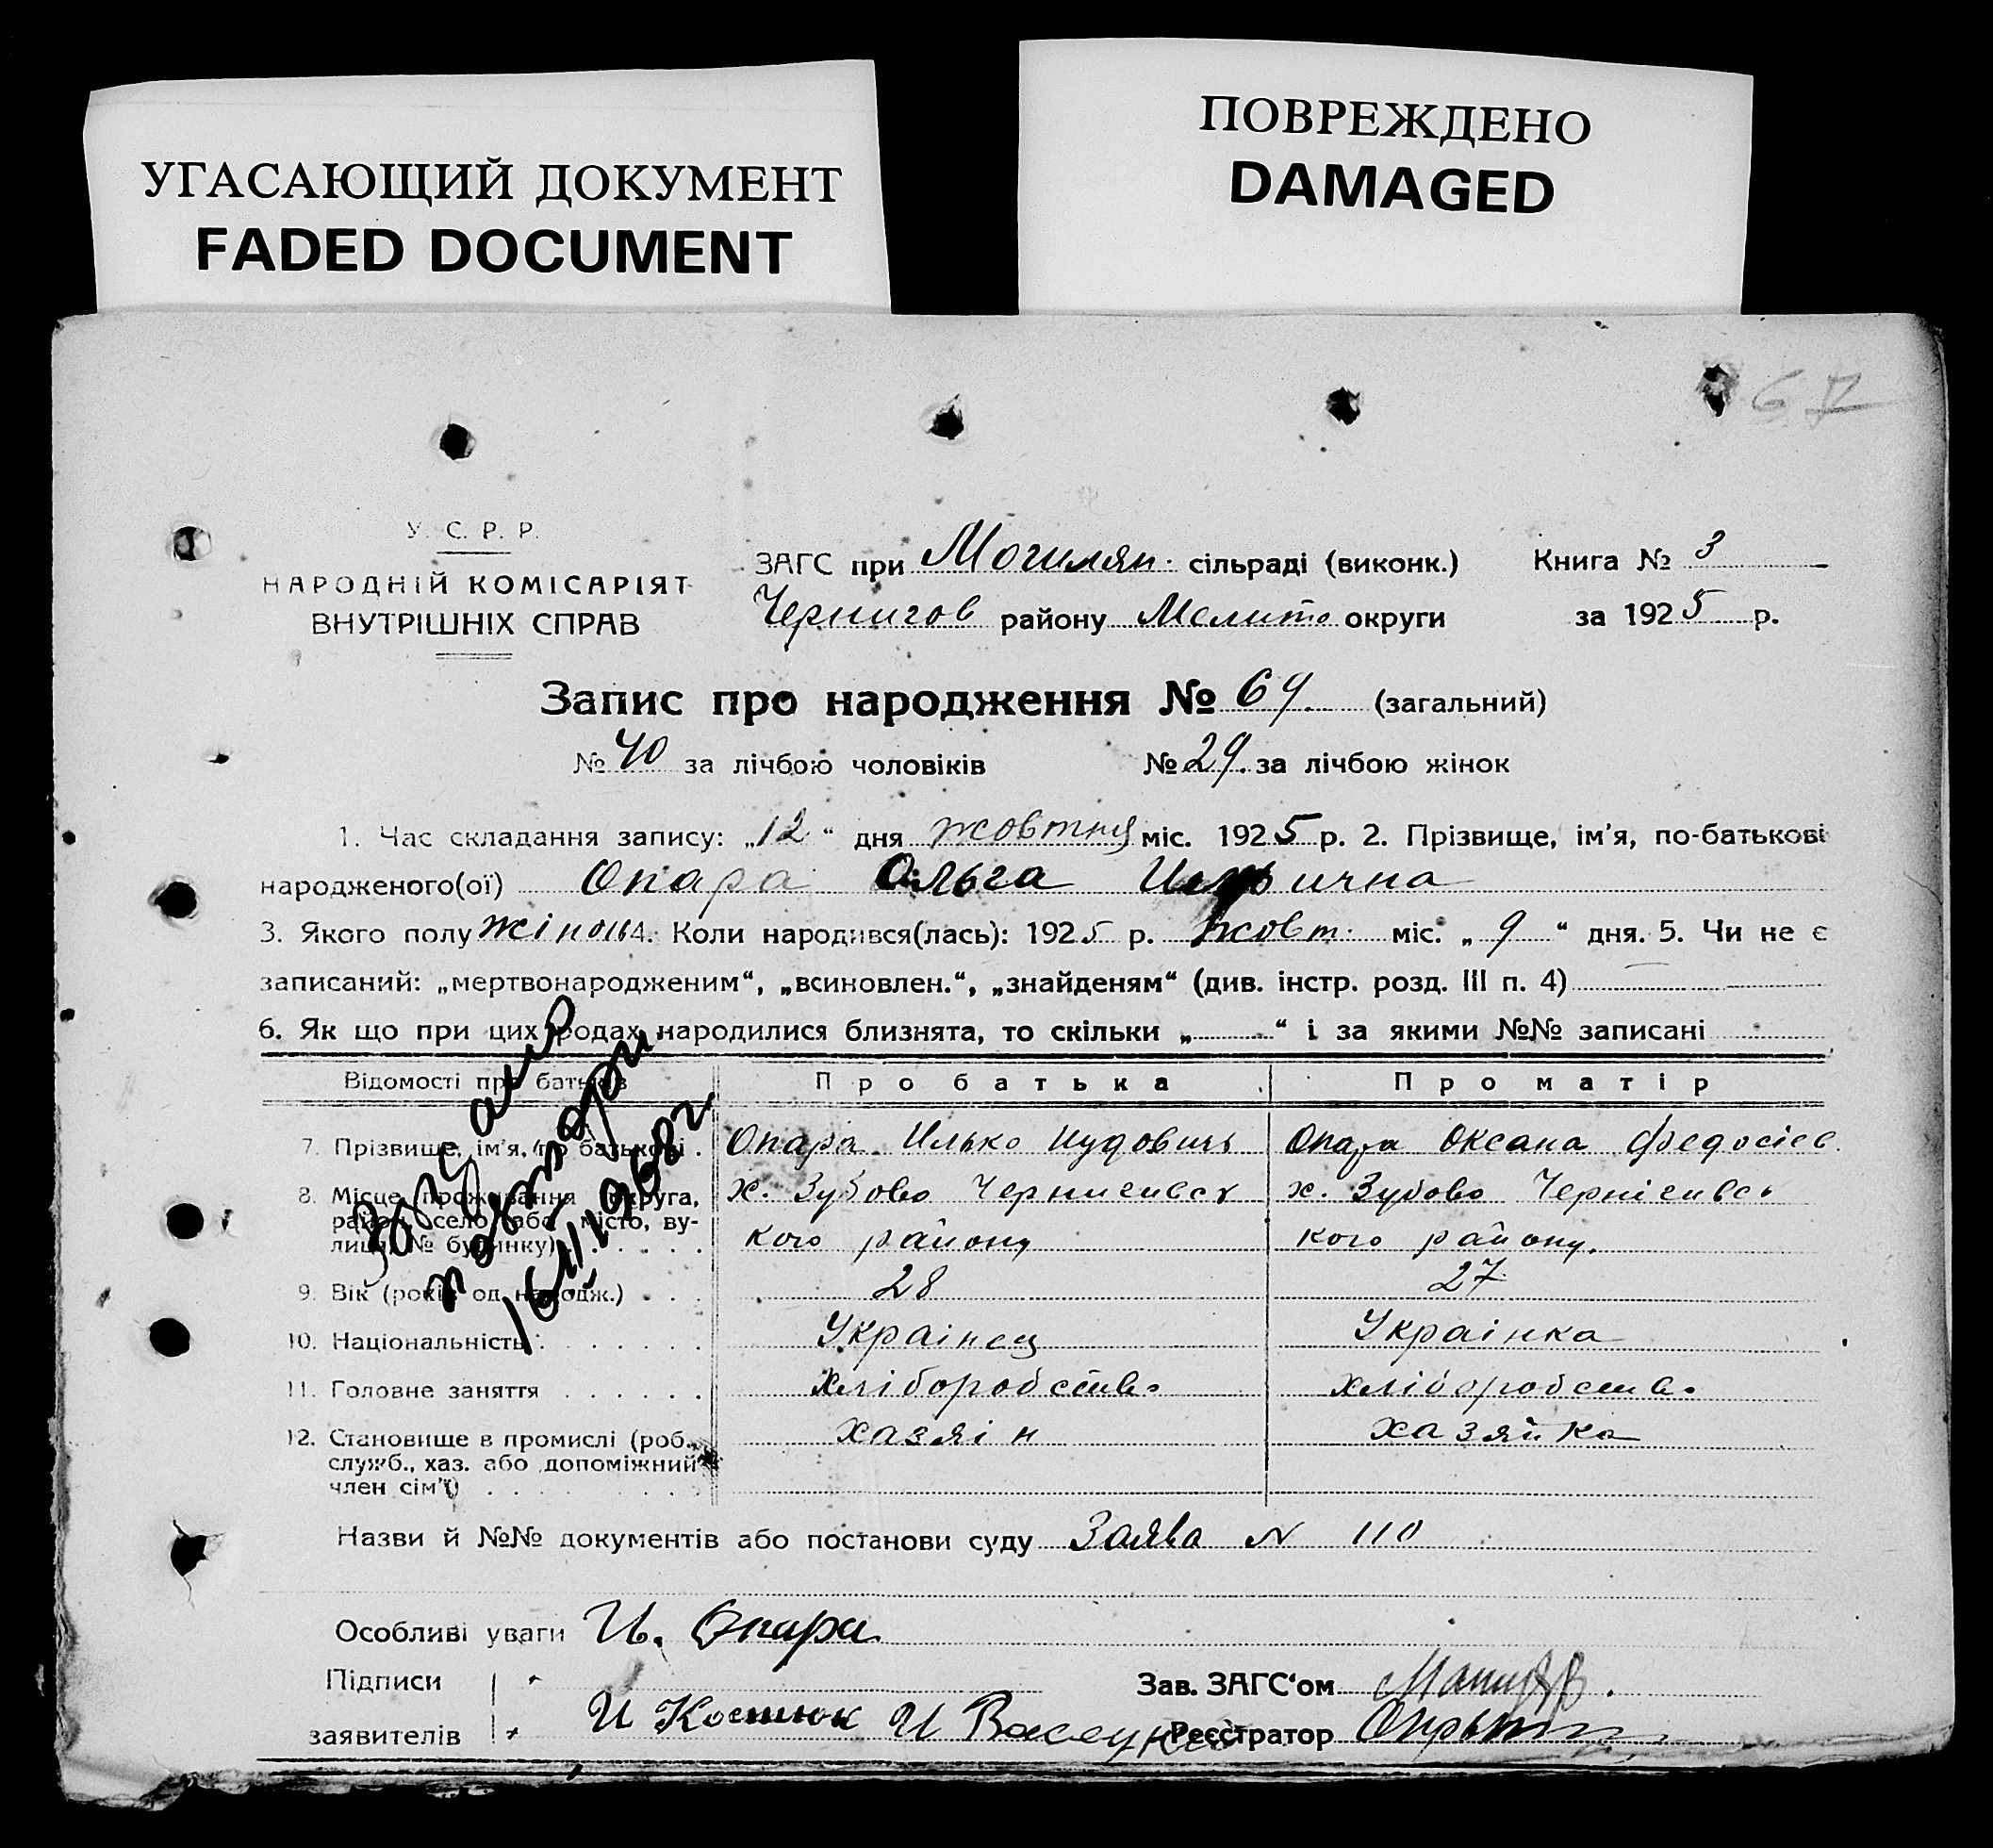 УГАСАЮЩИЙ ДОКУМЕНТ
FADED DOCUMENT
ПОВРЕЖДЕНО
DAMAGED
67
У. С. Р. Р.
НАРОДНІЙ КОМІСАРІЯТ
ВНУТРІШНІХ СПРАВ
ЗАГС при Могилян. сільраді (виконк.)
Чернигов району Мелито округи
Книга № 3
за 1925 р.
Запис про народження № 69. (загальний)
№ 40 за лічбою чоловіків № 29. за лічбою жінок
1. Час складання запису: „12“ дня жовтня міс. 1925 р. 2. Прізвище, ім'я, по-батькові
народженого(ої) Опара Ольга Ильична
3. Якого полу жіноч 4. Коли народився(лась): 1925 р. жовт. міс. „9“ дня. 5. Чи не є
записаний: „мертвонародженим“, „всиновлен.“, „знайденям“ (див. інстр. розд. III п. 4)
6. Як що при цих родах народилися близнята, то скільки „ “ і за якими №№ записані
Відомості про батьків Про батька Про матір
7. Прізвище, ім'я, по батькові . Опара Илько Иудович Опара Оксана Федосієв.
8. Місце проживання округа, х. Зубово Чернигивсь х. Зубово Чернігивсь
район село або місто, ву- кого району кого району.
лиця № будинку)
9. Вік (років од народж.) . . . 28 27
10. Національність . . . . . . Украінец Украінка
11. Головне заняття . . . . . . хліборобство хліборобство
12. Становище в промислі (роб., хазяін хазяйка
служб., хаз. або допоміжний
член сім'ї)
повтори
16/II 1968 г.
Назви й №№ документів або постанови суду Заява N 110
Особливі уваги И. Опара
Підписи
заявителів
И Костюк И
Зав. ЗАГС'ом
Реєстратор